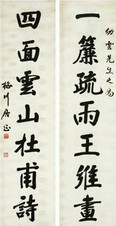 幼雲先生之属
一簾疏雨王維畫
四面雲山杜甫詩
梅川居正